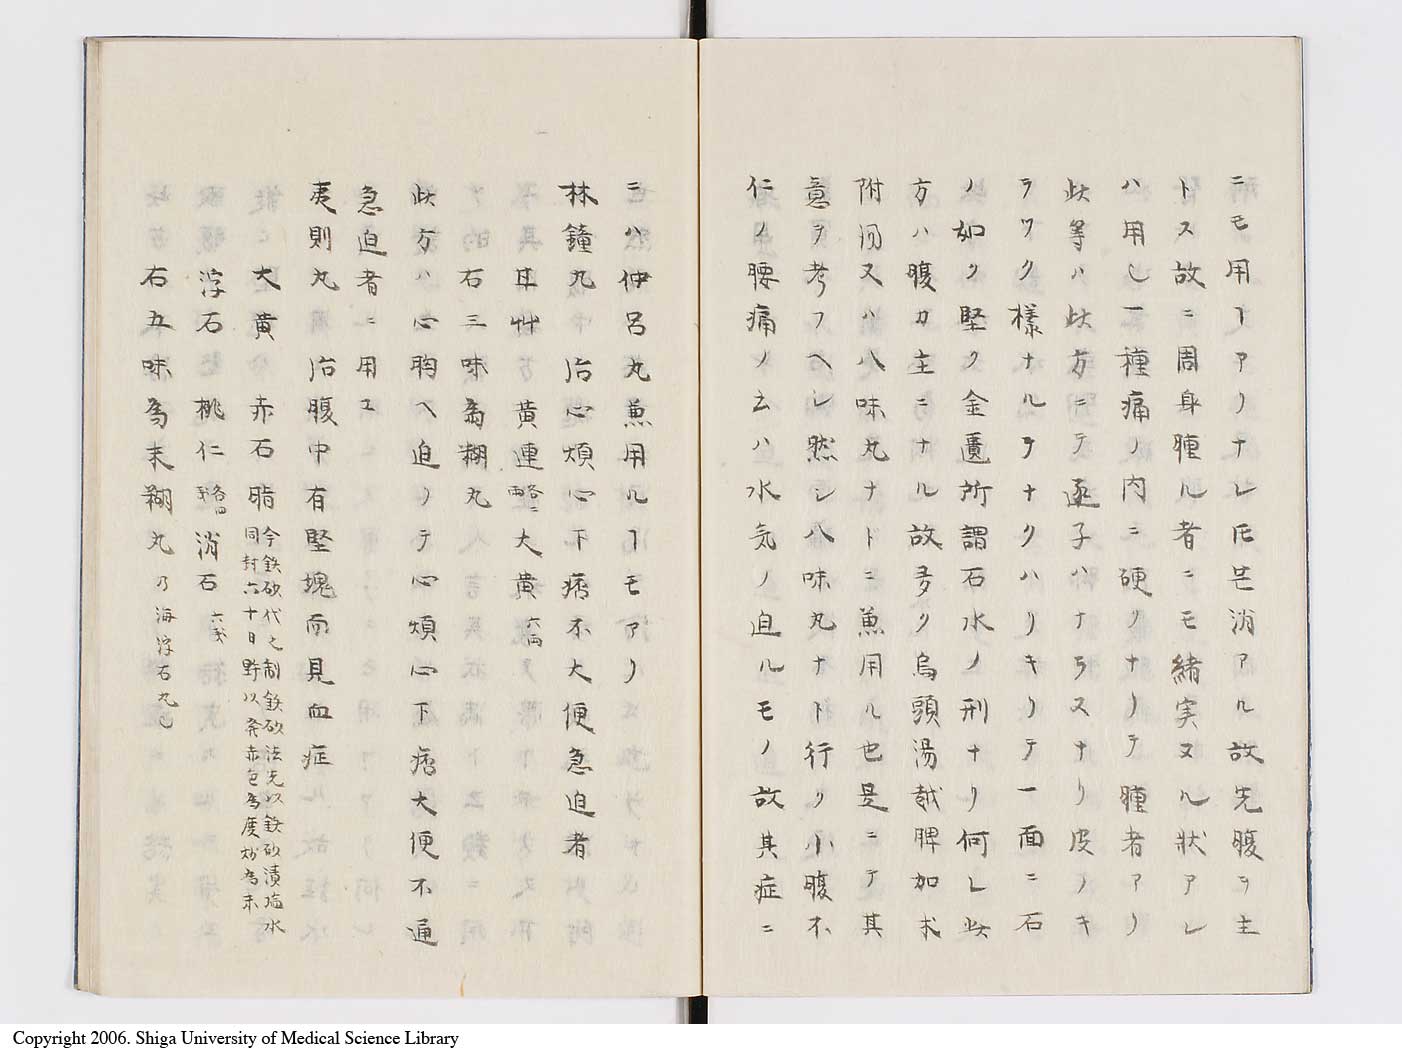 ニモ用ヿアリナレ𪜈芒消アル故先腹ヲ主
トス故ニ周身腫ル者ニモ緒実ヌル状アレ
ハ用じ一種痛ノ内ニ硬クナリテ腫者アリ
此等ハ此方ニテ逐子ハナラスナリ皮ノキ
ラワク様ナルヲナクハリキリテ一面ニ石
ノ如ク堅ク金匱所謂石水ノ刑ナリ何レ此
方ハ腹カ主ニナル故多ク烏頭湯越脾加朮
附湯又ハ八味丸ナドニ兼用ル也是ニテ其
意ヲ考フヘシ然シ八味丸ナト行ク小腹不
仁ノ腰痛ノ云ハ水気ノ迫ルモノ故其症ニ
ニハ仲呂丸兼用ルヿモアリ
林鐘丸 治心煩心下痞不大便急迫者
甘艸 黄連 各二両 大黄 六両
右三味為糊丸
此方ハ心胸ヘ迫リテ心煩心下痞大便不通
急迫者ニ用ユ
夷則丸 治腹中有堅塊而見血症
大黄 赤石脂 今鉄砂代之制鉄砂法先以鉄砂漬塩水
同封六十日野以発赤色為度炒為末
浮石 桃仁 各四戔 消石 六戔
右五味為末糊丸 乃海浮石丸也
Copyright 2006. Shiga University of Medical Science Library